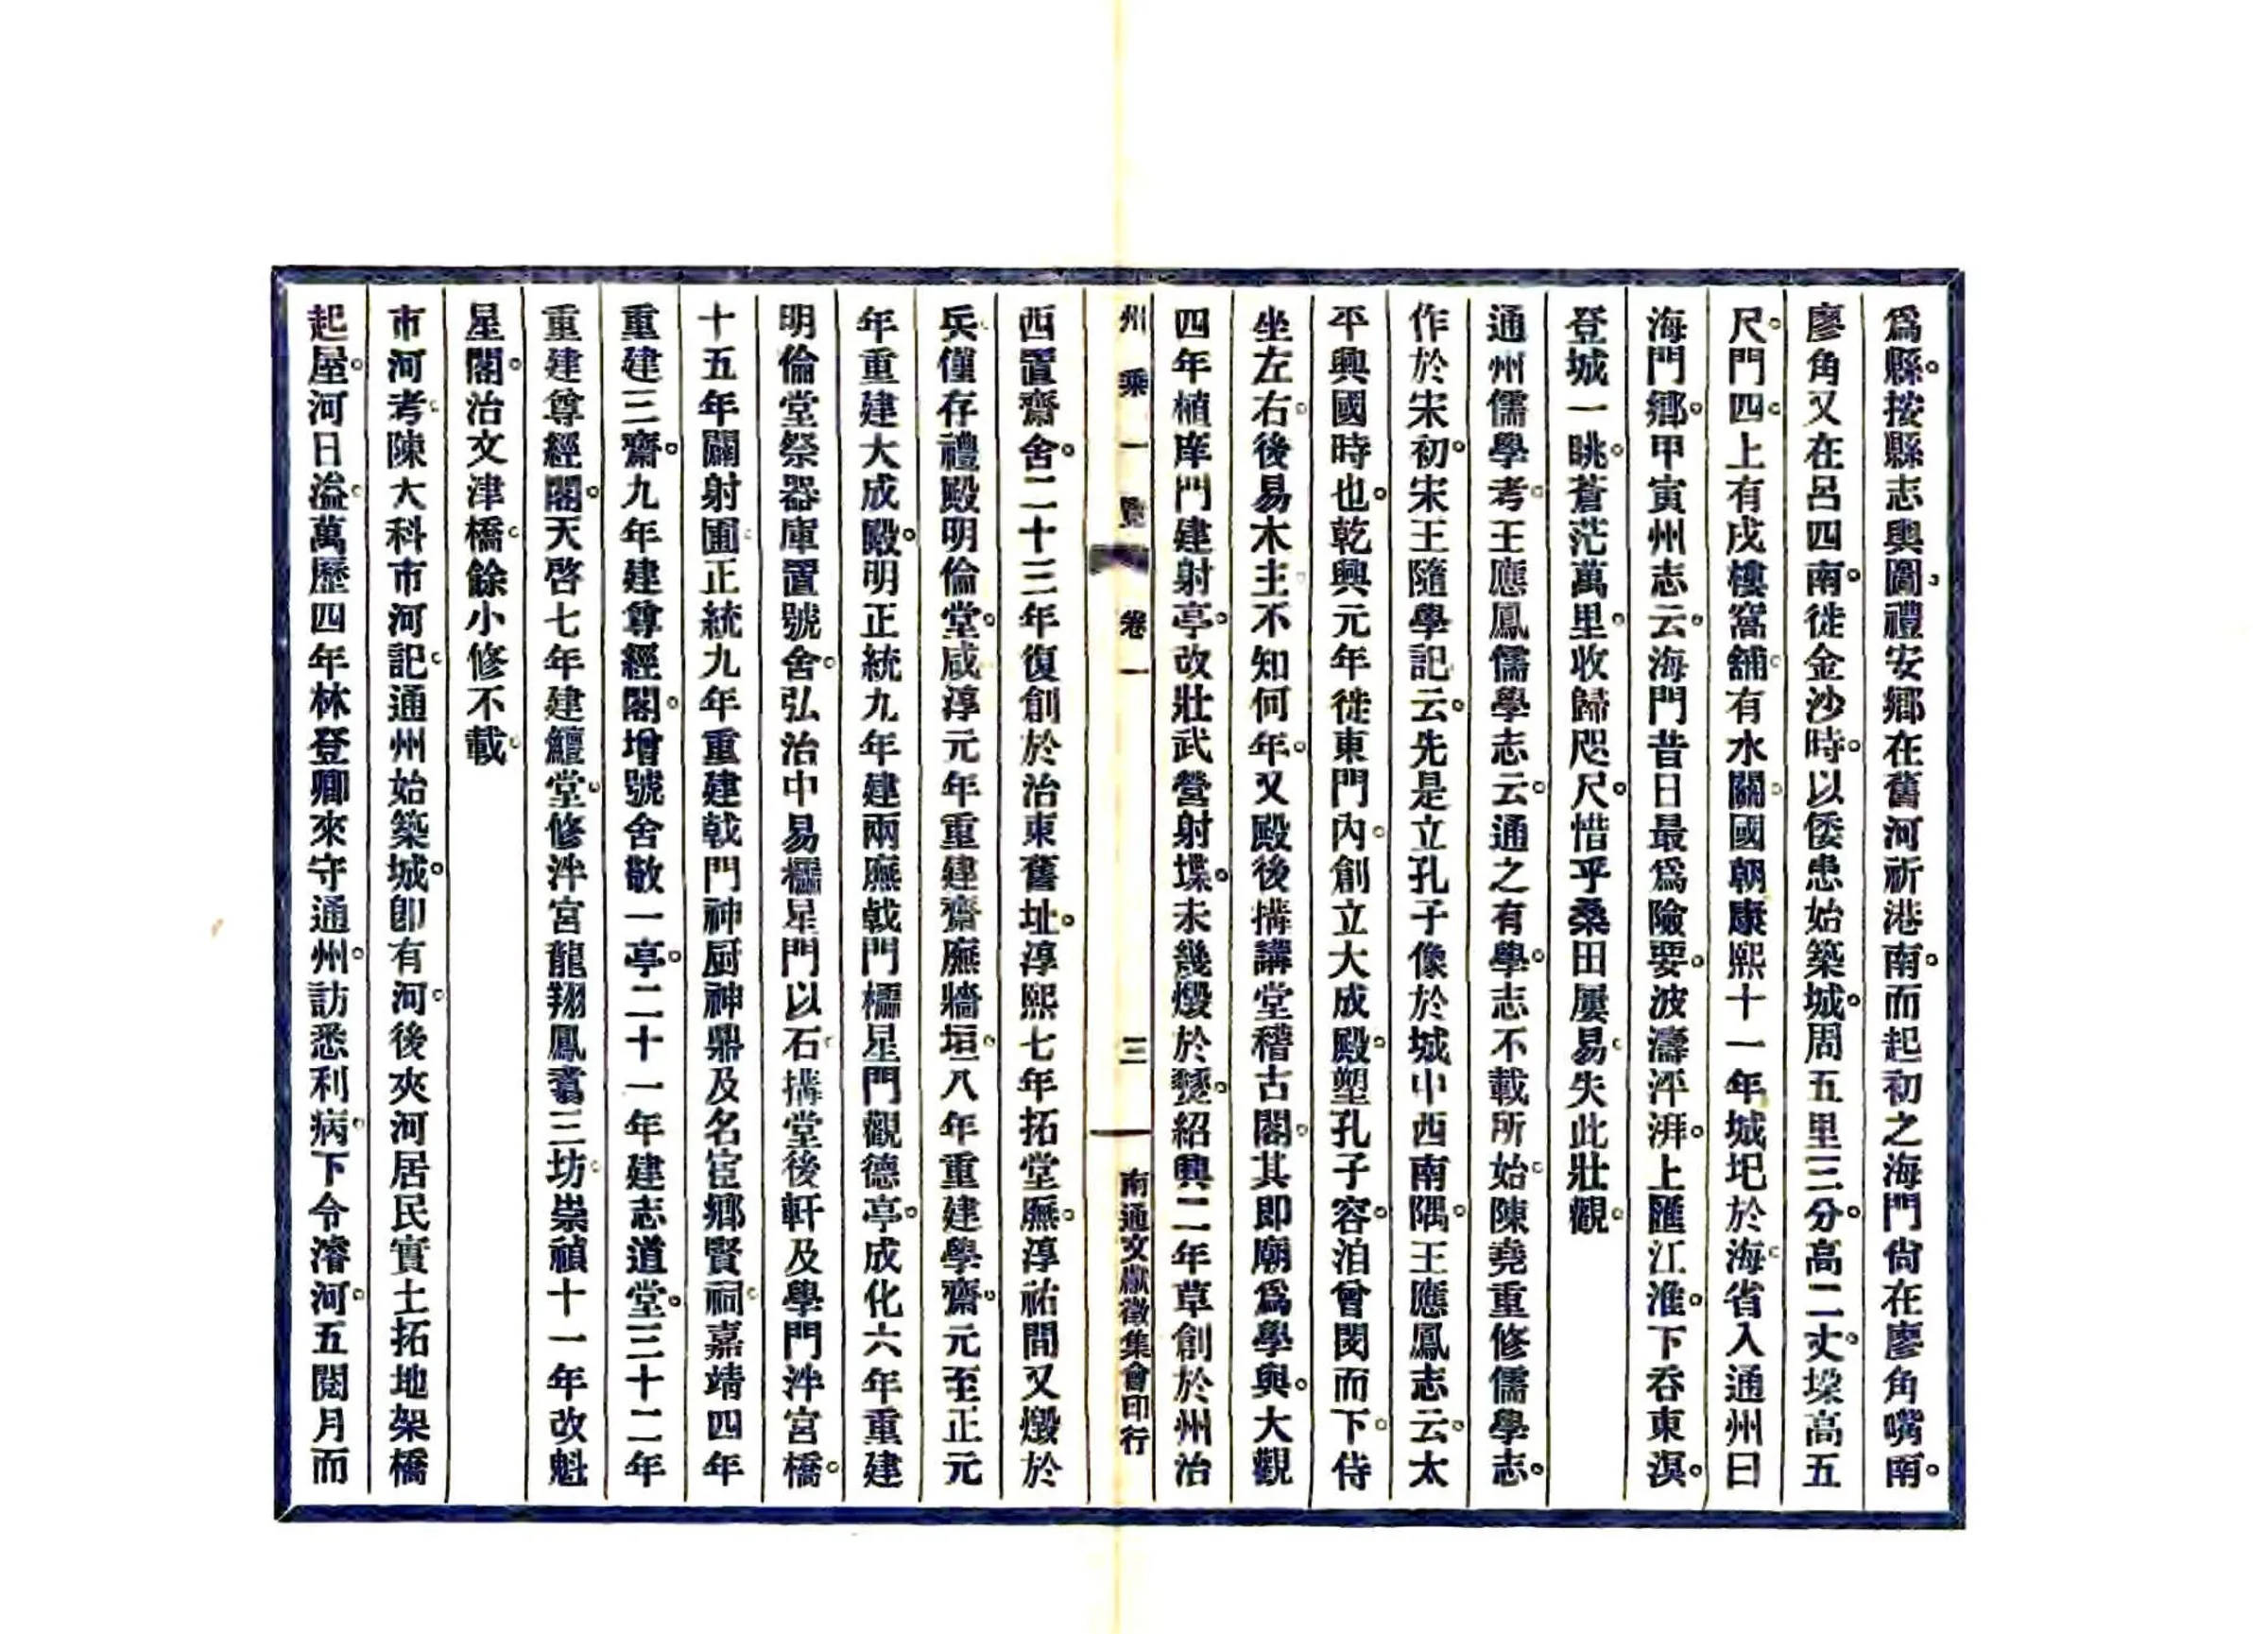 爲縣。按縣志輿圖。禮安鄉在舊河祈港南。而起初之海門尙在廖角嘴南。
廖角又在呂四南。徙金沙時。以倭患始築城。周五里三分。高二丈。垜高五
尺。門四。上有戍樓窩舖。有水關。國朝康熙十一年城圯於海。省入通州曰
海門鄉。甲寅州志云。海門昔日最爲險要。波濤泙湃。上匯江淮。下吞東溟。
登城一眺。蒼茫萬里。收歸咫尺。惜乎桑田屢易。失此壯觀。
通州儒學考。王應鳳儒學志云。通之有學。志不載所始。陳堯重修儒學志。
作於宋初。宋王隨學記云。先是立孔子像於城中西南隅。王應鳳志云。太
平興國時也。乾興元年徙東門內。創立大成殿。塑孔子容。洎曾閔而下。侍
坐左右。後易木主。不知何年。又殿後搆講堂稽古閣。其即廟爲學與。大觀
四年植庠門建射亭。改壯武營射堞。未幾燬於燹。紹興二年草創於州治
州乘一覽 卷一 三 南通文獻徵集會印行
西置齋舍。二十三年復創於治東舊址。淳熙七年拓堂廡。淳祐間又燬於
兵。僅存禮殿明倫堂。咸淳元年重建齋廡牆垣。八年重建學齋。元至正元
年重建大成殿。明正統九年建兩廡戟門櫺星門觀德亭。成化六年重建
明倫堂祭器庫置號舍。弘治中易櫺星門以石。搆堂後軒及學門泮宮橋。
十五年闢射圃。正統九年重建戟門神厨神鼎及名宦鄉賢祠。嘉靖四年
重建三齋。九年建尊經閣。增號舍敬一亭。二十一年建志道堂。三十二年
重建尊經閣。天啓七年建鱣堂。修泮宮龍翔鳳翥三坊。崇禎十一年改魁
星閣。治文津橋。餘小修不載。
市河考。陳大科市河記。通州始築城。卽有河。後夾河居民實土拓地架橋
起屋。河日溢。萬歷四年林登卿來守通州。訪悉利病。下令濬河。五閱月而